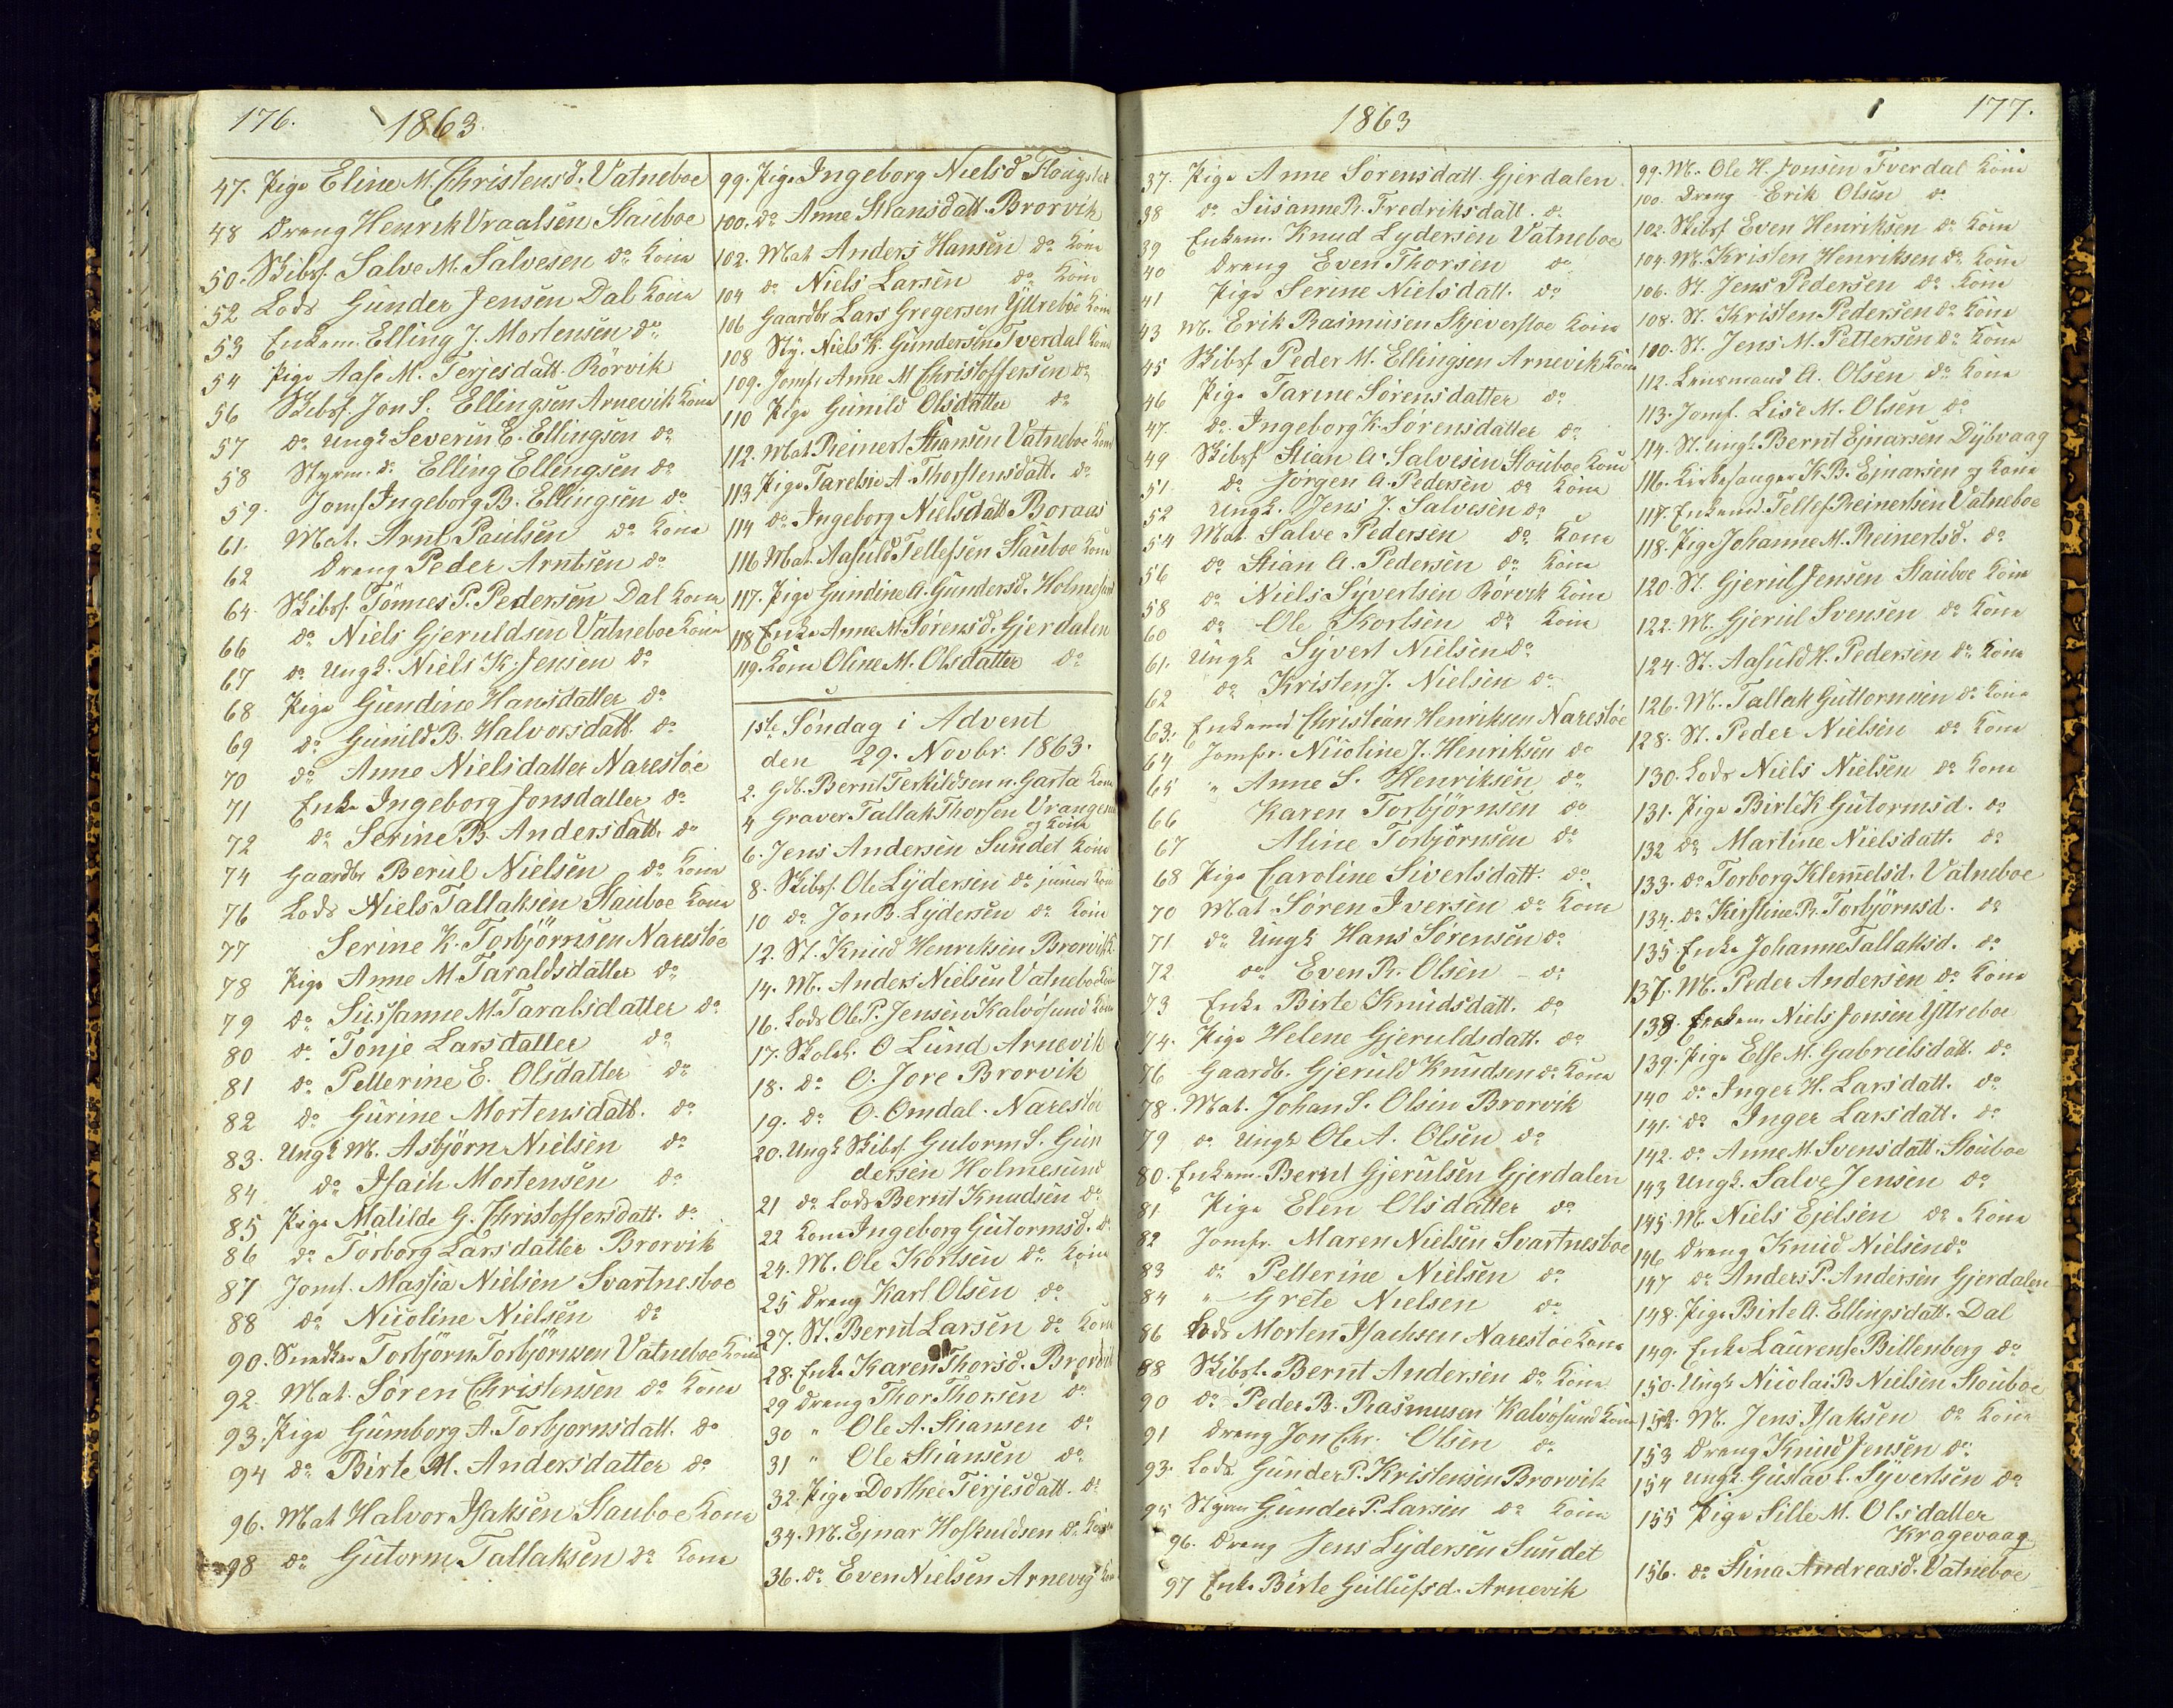 176. 1863.
47. Pige Eline M. Christensd. Vatneboe
48 Dreng Henrik Vraalsen Stauboe
50. Skibsf. Salve M. Salvesen do Kone
52 Lods Gunder Jensen Dal Kone
53 Enkem. Elling J. Mortensen do
54 Pige Aase M. Terjesdatt. Rörvik
56 Skibsf. Jon S. Ellingsen Arnevik Kone
57 do Ungk. Severin E. Ellingsen do
58 Styrm. do Elling Ellingsen do
59. Jomf Ingeborg B. Ellingsen do
61. Mat. Arnt Paulsen do Kone
62 Dreng Peder Arntsen do
64. Skibsf. Tönnes P. Pedersen Dal Kone
66 do Niels Gjeruldsen Vatneboe Kone
67 do Ungk. Niels K. Jensen do
68 Pige Gundine Hansdatter do
69 do Gunild B. Halvorsdatt. do
70 do Anne Nielsdatter Narestöe
71 Enke Ingeborg Jonsdatter do
72 do Serine B. Andersdatt. do
74 Gaardbr Berul Nielsen do Kone
76 Lods Niels Tallaksen Stauboe Kone
77 Serine K. Torbjörnsen Narestöe
78 Pige Anne M. Taraldsdatter do
79 do Sussanne M. Taralsdatter do
80 do Tonje Larsdatter do
81 do Petterine E. Olsdatter do
82 do Gurine Mortensdatt. do
83. Ungk M. Asbjörn Nielsen do
84 do Isach Mortensen do
85 Pige Matilde G. Christoffersdatt. do
86 do Torborg Larsdatter Brorvik
87 Jomf. Massia Nielsen Svartnesboe
88 do Nicoline Nielsen do
90. Snedker Torbjörn Torbjörnsen Vatneboe Kone
92 Mat. Sören Christensen do Kone
93. Pige Gumborg A. Torbjornsdatt. do
94 do Birte M. Andersdatter do
96. Mat Halvor Isaksen Stauboe Kone
98 do Gutorm Tallaksen do Kone
99. Pige Ingeborg Nielsd
100. do Anne Stiansdatt. Brorvik
102. Mat Anders Hansen do Kone
104 do Niels Larsen do Kone
106 Gaardbr Lars Gregersen Yttreboe Kone
108 Sty. Niels K. Gundersen Tverdal Kone
109. Jomfr Anne M Christoffersen do
110 Pige Gunild Olsdatter do
112. Mat Reinert Stiansen Vatneboe Kone
113 Pige Tarebie A. Thorstensdatt. do
114 do Ingeborg Nielsdatt Boraas
116 Mat. Aasuld Tellefsen Stauboe Kone
117. Pige Gundine A. Gundersd. Holmesund
118 Enke Anne M. Sörensd. Gjerdalen
119. Kone Oline M. Olsdatter do
1ste Söndag i Advent
den 29. Novbr. 1863.
2. Gdb. Bernt Terkildsen n. Garta Kone
4 Graver Tallak Thorsen Vrangen
og Kone
6. Jens Andersen Sundet Kone
8. Skibsf. Ole Lydersen do junior Kone
10 do Jon B. Lydersen do Kone
12. St. Knud Henriksen Brorvik K
14. M. Anders Nielsen Vatneboe Kone
16. Lods Ole P. Jensen Kalvösund Kone
17. Skolel. O Lund Arnevik
18. do O. Jore Brorvik
19. do O. Omdal. Narestöe
20. Ungk Skibsf. Gutorm S. Gun
dersen Holmesund
21 do Lods Bernt Knudsen do
22 Kone Ingeborg Gutormsd. do
24. M. Ole Kortsen do Kone
25 Dreng Karl Olsen do
27. St. Bernt Larsen do Kone
28. Enke Karen Thorsd. Brorvik
29 Dreng Thor Thorsen do
30 " Ole A. Stiansen do
31 " Ole Stiansen do
32. Pige Dorthe Terjesdatt. do
34. M. Ejnar Hofkuldsen do Kone
36. do Even Nielsen Arnevig Kone
1863 177.
37. Pige Anne Sörensdatt. Gjerdalen
38 do Susanne R. Fredriksdatt. do
39 Enkem. Knud Lydersen Vatneboe
40 Dreng Even Thorsen do
41 Pige Serine Nielsdatt. do
43 M. Erik Rasmusen Skjeverstoe Kone
45 Skibsf Peder M. Ellingsen Arnevik Kone
46 Pige Tarine Sörensdatter do
47. do Ingeborg K. Sörensdatter do
49 Skibsf Stian A. Salvesen Stouboe Kone
51 do Jörgen A. Pedersen do Kone
52 Ungk. Jens J. Salvesen do
54 Mat. Salve Pedersen do Kone
56 do Stian A. Pedersen do Kone
58 do Niels Syvertsen Rörvik Kone
60 do Ole Kortsen do Kone
61. Ungk Syvert Nielsen do
62 do Kristen J. Nielsen do
63. Enkemd Christian Henriksen Narestöe
64 Jomfr. Nicoline J. Henriksen do
65 " Anne S. Henriksen do
66 Karen Torbjörnsen do
67 Aline Torbjörnsen do
68 Pige Caroline Sivertsdatt. do
70 Mat Sören Iversen do Kone
71 do Ungk Hans Sörensen do
72 do Even R. Olsen - do
73 Enke Birte Knudsdatt. do
74. Pige Helene Gjeruldsdatt. do
76 Gaardb. Gjeruld Knudsen do Kone
78. Mat. Johan S. Olsen Brorvik
79 do Ungk Ole A. Olsen do
80. Enkem. Bernt Gjerulsen Gjerdalen
81 Pige Elen Olsdatter do
82 Jomfr. Maren Nielsen Svartnesboe
83 do Petterine Nielsen do
84 " Grete Nielsen do
86 Lods Morten Isachsen Narestöe Kone
88 Skibsf. Bernt Andersen do Kone
90 do Peder B. Rasmusen Kalvösund Kone
91 Dreng Jon Chr. Olsen do
93. Lods Gunder P. Kristensen Brorvik
95 Styrm Gunder P. Larsen do Kone
96. Dreng Jens Lydersen Sundet
97 Enke Birte Gullufsd. Arnevik
99. M. Ole H. Jonsen Tverdal Kone
100. Dreng Erik Olsen do
102. Skibsf Even Henriksen do Kone
104. M. Kristen Henriksen do Kone
106. St. Jens Pedersen do Kone
108. St. Kristen Pedersen do Kone
110. St. Jens M. Pettersen do Kone
112. Lensmand A. Olsen do Kone
113. Jomf. Lise M. Olsen do
114. St. Ungk. Bernt Ejnarsen Dybvaag
116. Kirkesanger K. B. Ejnarsen og Kone
117. Enkemd. Tellef Reinertsen Vatneboe
118. Pige Johanne M. Reinertsd. do
120. St. Gjerul Jensen Stauboe Kone
122. M. Gjerul Svensen do Kone
124. St. Aasuld H. Pedersen do Kone
126. M. Tallak Guttormsen do Kone
128. St. Peder Nielsen do Kone
130. Lods Niels Nielsen do Kone
131. Pige Birte K Gutormsd. do
132 do Martine Nielsdatt. do
133. do Torborg Klemetsd. Vatneboe
134. do Kirstine R. Torbjörnsd. do
135. Enke Johanne Tallaksd. do
137. M. Peder Andersen do Kone
138. Enkem. Niels Jonsen Yttreboe
139. Pige Else M. Gabrielsdatt. do
140 do Inger H. Larsdatt. do
141. do Inger Larsdatt. do
142. do Anne M. Svensdatt. Stouboe
143 Ungk. Salve Jensen do
145. M. Niels Ejelsen do Kone
146 Dreng Knud Nielsen do
147 do Anders P. Andersen Gjerdalen
148. Pige Birte A. Ellingsdatt. Dal
149. Enke Laurense Billenberg do
150. Ungk Nicolai B Nielsen Stouboe
152. M. Jens Isaksen do Kone
153 Dreng Knud Jensen do
154 Ungk. Gustav L. Syvertsen do
155 Pige Sille M. Olsdatter
Kragevaag
156. do Stina Andreasd. Vatneboe